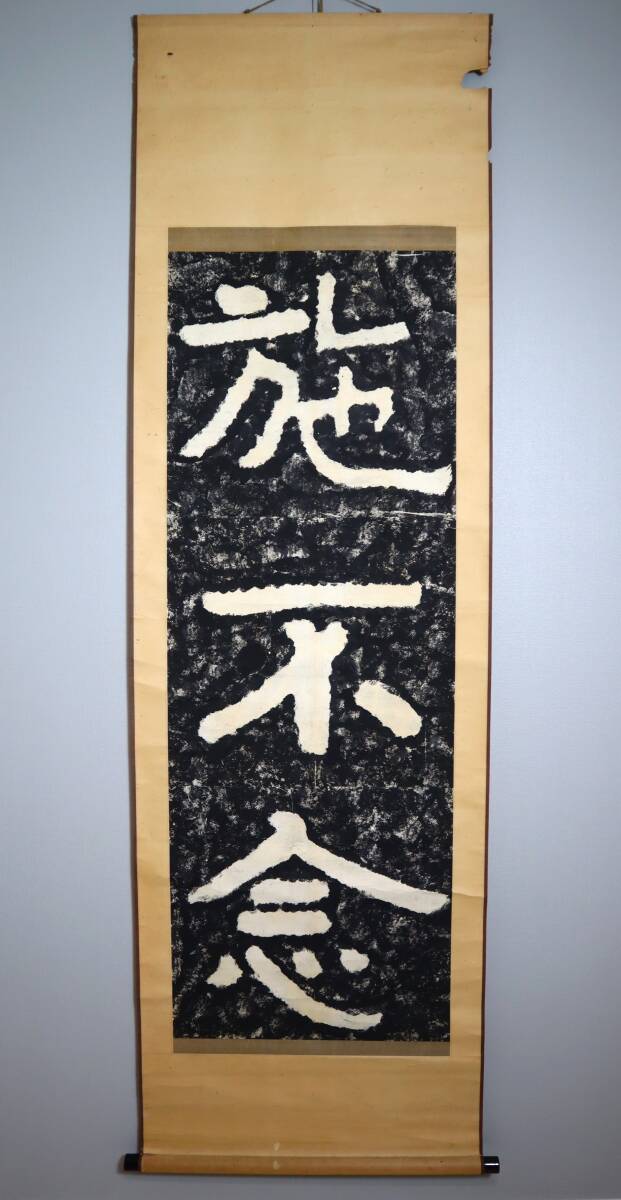 施不念